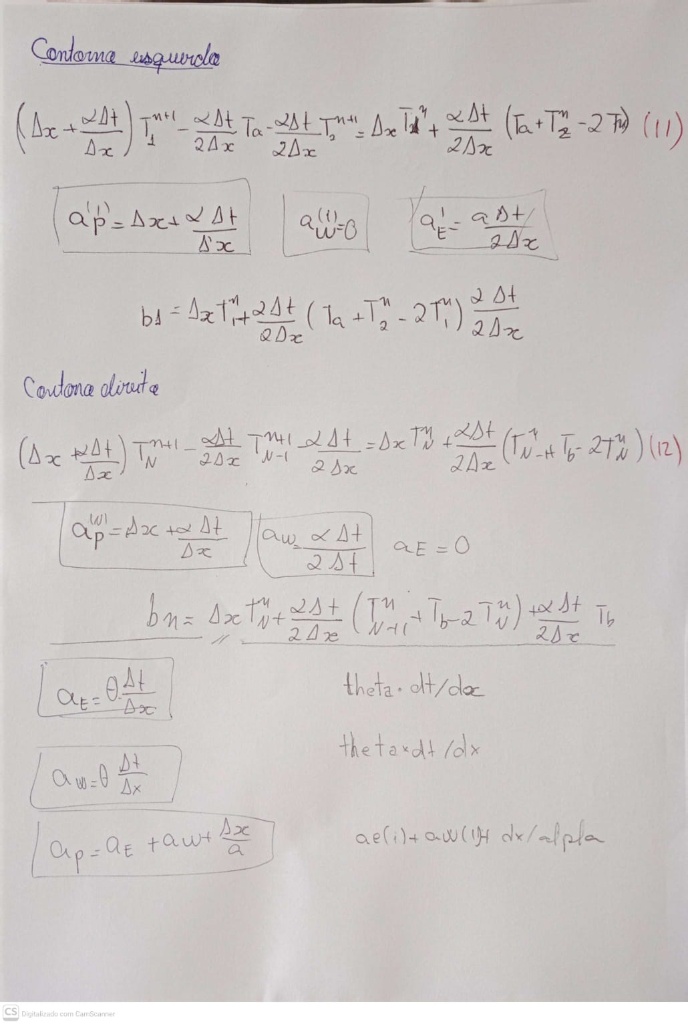 Contorno esquerdo
(Δx + αΔt/Δx) T₁ⁿ⁺¹ - αΔt/2Δx Ta - αΔt/2Δx T₂ⁿ⁺¹ = Δx T₁ⁿ + αΔt/2Δx (Ta + T₂ⁿ - 2 T₁ⁿ) (11)
aₚ⁽¹⁾ = Δx + αΔt/Δx   a_W⁽¹⁾ = 0   a_E¹ = aΔt/2Δx
b1 = Δx T₁ⁿ + αΔt/2Δx (Ta + T₂ⁿ - 2T₁ⁿ) αΔt/2Δx
Contorno direita
(Δx + αΔt/Δx) T_Nⁿ⁺¹ - αΔt/2Δx T_N-1ⁿ⁺¹ - αΔt/2Δx = Δx T_Nⁿ + αΔt/2Δx (T_N-1ⁿ + T_b - 2T_Nⁿ) (12)
aₚ⁽ᴺ⁾ = Δx + αΔt/Δx   a_W = αΔt/2Δt   a_E = 0
bn = Δx T_Nⁿ + αΔt/2Δx (T_N+1ⁿ + T_b - 2T_Nⁿ) + αΔt/2Δx T_b
a_E = θ·Δt/Δx   theta · dt/dx
a_W = θ Δt/Δx   theta x dt/dx
aₚ = a_E + a_W + Δx/a   ae(i) + aw(i) + dx/alpla
CS Digitalizado com CamScanner